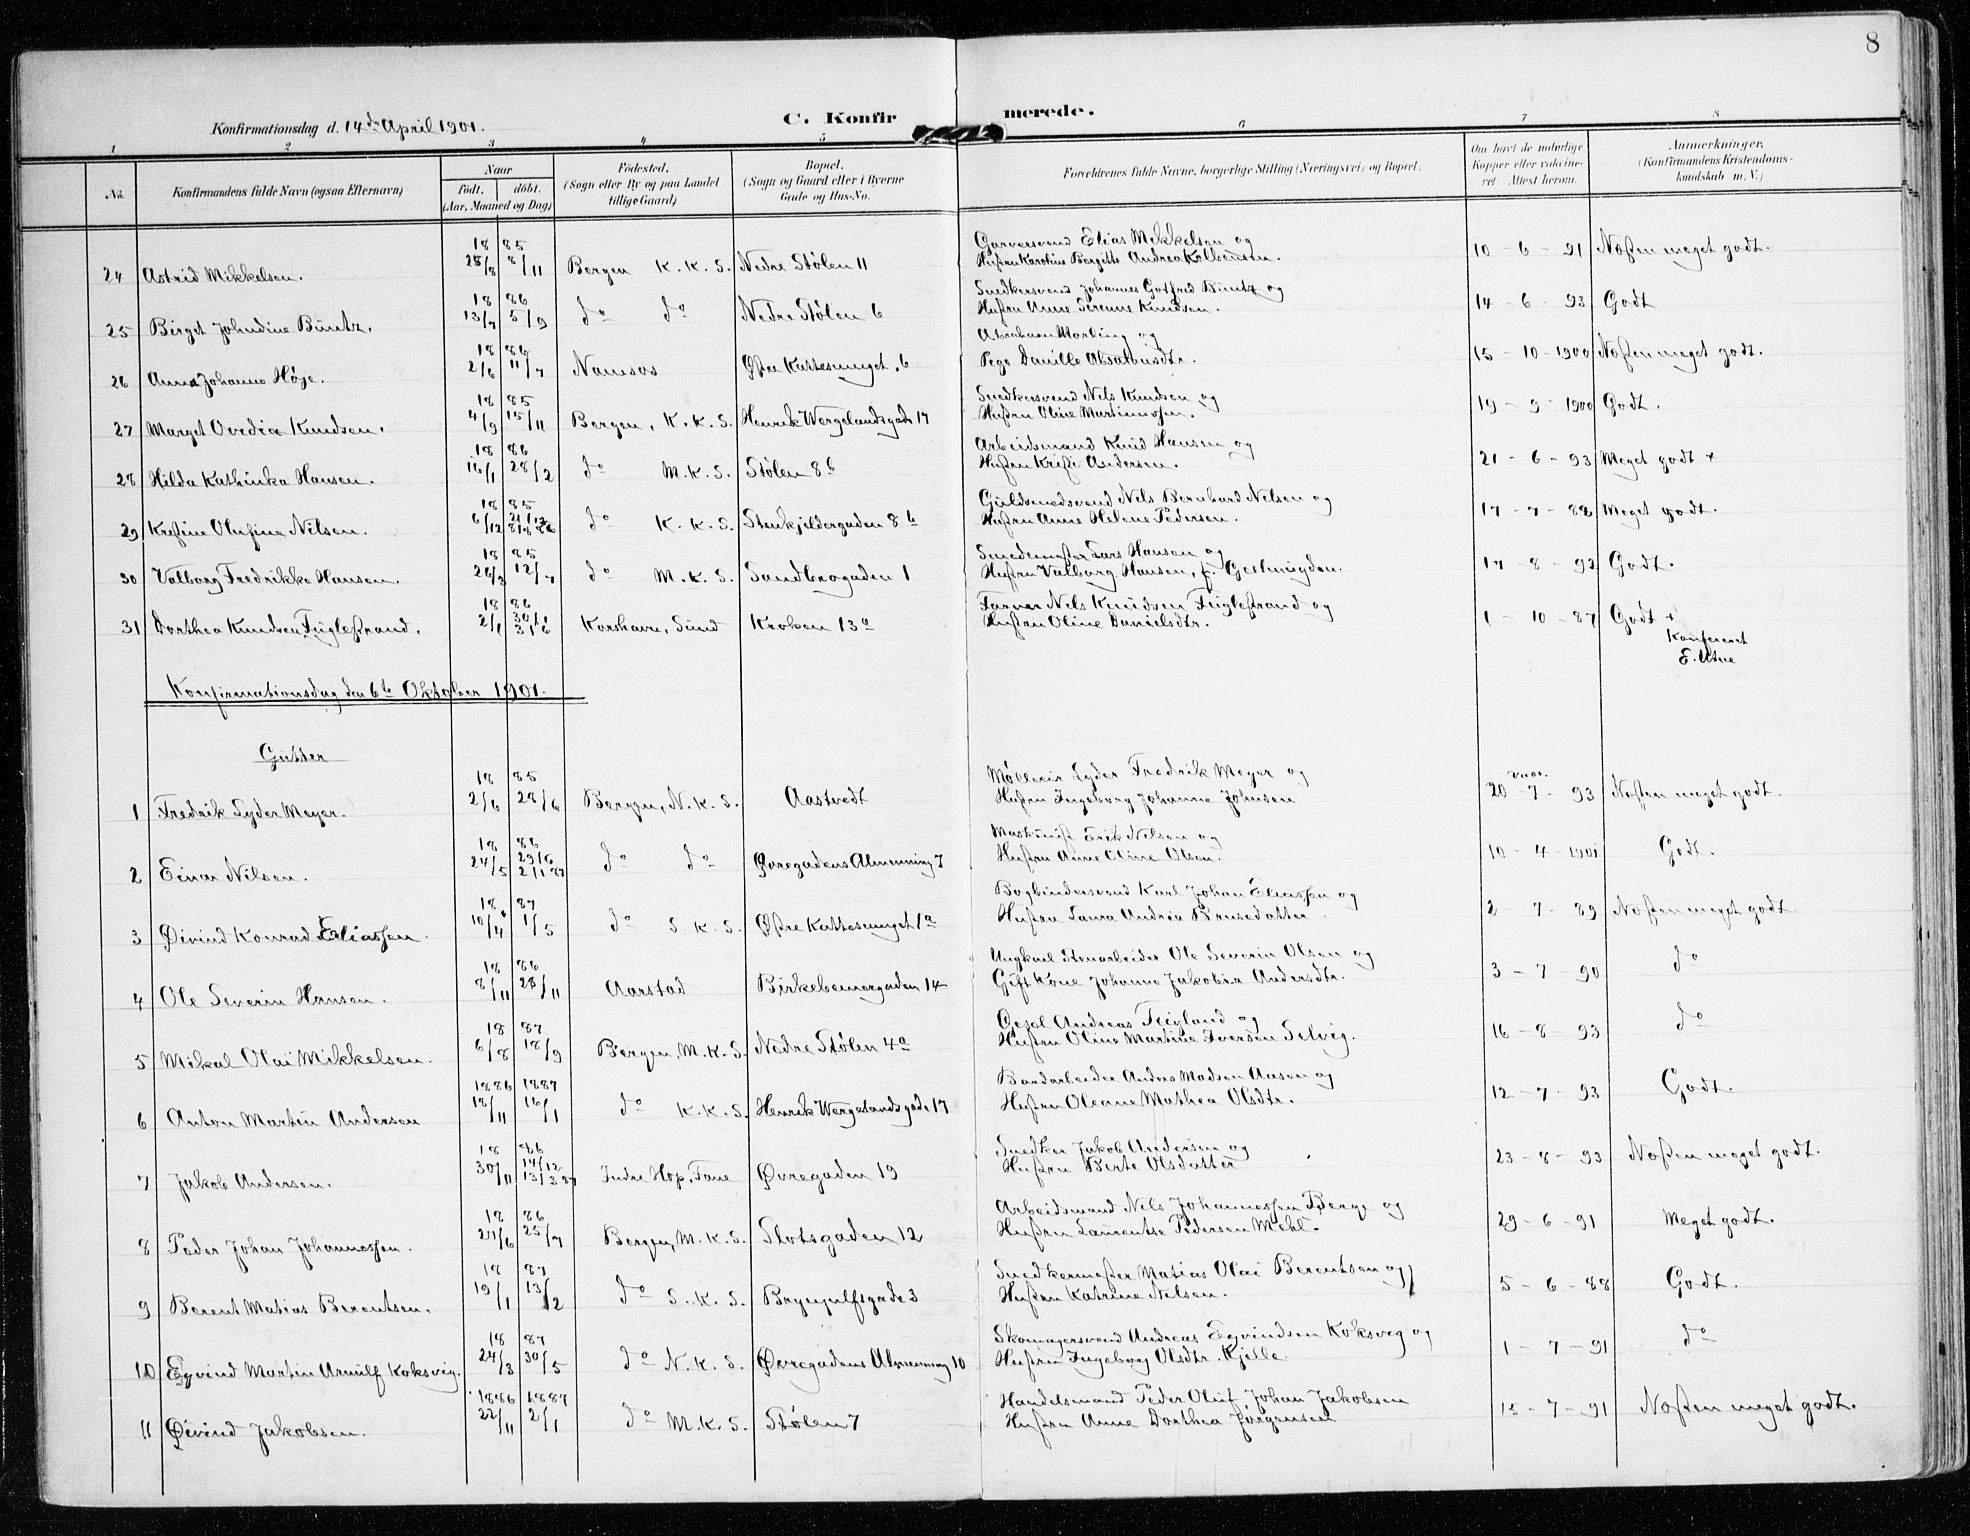 8
Konfirmationsdag d. 14de April 1901.
C. Konfirmerede.
1 2 3 4 5 6 7 8
No. Konfirmandens fulde Navn (ogsaa Efternavn) Naar født, døbt. (Aar, Maaned og Dag) Fødested. (Sogn eller By og paa Landet tillige Gaard) Bopæl. (Sogn og Gaard eller i Byerne Gade og Hus-No. Forældrenes fulde Navne, borgerlige Stilling (Næringsvei) og Bopæl. Om havt de naturlige Kopper eller vaccineret. Attest herom. Anmærkninger, (Konfirmandens Kristendomskundskab m. V.)
24 Astrid Mikkelsen. 18 85 25/8 8/11 Bergen K. K. S. Nedre Stølen 11 Garversvend Elias Mikkelsen og Hustru Karoline Bergitte Andrea 10 - 6 - 91 Næsten meget godt.
25 Birget Johndine Büntz. 18 86 13/7 5/9 do do Nedre Stølen 6 Snedkersvend Johannes Gotfred Büntz og Hustru Anne Serene Knudsen. 14 - 6 - 93 Godt
26 Anna Johanne Høje. 18 86 2/6 11/7 Namsos Østre Kattesmuget 6 og Pege Danille Absalonsdtr. 15 - 10 - 1900 Næsten meget godt.
27 Marget Ovedia Knudsen. 18 85 4/9 15/11 Bergen, K. K. S. Henrik Wergelandsgade 17 Snedkersvend Nils Knudsen og Hustru Oline Martinussen. 19 - 9 - 1900 Godt.
28 Hilda Kathinka Hansen. 18 86 16/1 28/2 do M. K. S. Stølen 8b Arbeidsmand Knud Hansen og Hustru Kristi Andersen. 21 - 6 - 93 Meget godt +
29 Kristine Olufine Nilsen. 18 85 6/12 21/12 8/8 86 do K. K. S. Stenkjeldergaden 8b Guldsmedsvend Nils Bernhard Nilsen og Hustru Anne Helene Pedersen. 17 - 7 - 88 Meget godt.
30 Valborg Fredrikke Hansen. 18 85 26/3 12/7 do M. K. S. Sandbrogaden 1 Smedemester Lars Hansen og Hustru Valborg Hansen, f. 17 - 8 - 92 Godt.
31 Dorthea Knudsen Fuglestrand. 18 86 2/1 30/1 3/6 Korshavn, Sund Kroken 13a Farver Nils Knudsen Fuglestrand og Hustru Oline Danielsdtr. 1 - 10 - 87 Godt +
Konfereret
E. Utne
Konfirmationsdag den 6te Oktober 1901.
Gutter
1 Fredrik Lyder Meyer. 18 85 2/6 28/6 Bergen, N. K. S. Aastvedt Lyder Fredrik Meyer og Hustru Ingeborg Johanne Johnsen 20 - 7 - 93 Næsten meget godt.
2 Einar Nilsen. 18 86 24/5 29/6 2/1 87 do do Øvregadens Almenning 7 Maskinist Erik Nilsen og Hustru Anne Oline Olsen. 10 - 4 - 1901 Godt.
3 Øivind Konrad Eliassen. 18 87 10/4 1/5 do S. K. S. Østre Kattesmuget 1a Bogbindersvend Karl Johan Eliassen og Hustru Laura Andrea Brusedatter. 2 - 7 - 89 Næsten meget godt.
4 Ole Severin Hansen. 18 86 8/11 28/11 Aarstad Birkebeinergaden 14 Ungkarl Stenarbeider Ole Severin Olsen og Gift Kone Johanne Jakobia Andersdtr. 3 - 7 - 90 do
5 Mikal Olai Mikkelsen. 18 87 6/8 18/9 Bergen, M. K. S. Nedre Stølen 4a Andreas og Hustru Oline Martine Iversen Selvig. 16 - 8 - 93 do
6 Anton Martin Andersen 1886 1887 18/11 16/1 do K. K. S. Henrik Wergelandsgade 17 Anders Madsen Aasen og Hustru Oleane Mathea Olsdtr. 12 - 7 - 93 Godt.
7 Jakob Andersen. 18 86 30/11 14/12 13/3 87 Indre Hop, Fane Øvregaden 19 Snedker Jakob Andersen og Hustru Berte Olsdatter 23 - 8 - 93 Næsten meget godt.
8 Peder Johan Johannessen. 18 86 21/6 25/7 Bergen, M. K. S. Slotsgaden 12 Arbeidsmand Nils Johannessen Berge og Hustru Laurentse Pedersen Mehl. 29 - 6 - 91 Meget godt.
9 Berent Matias Berentsen. 18 87 19/1 13/2 do S. K. S. Brynjulfsgade 3 Snedkermester Matias Olai Berentsen og Hustru Katrine Nilsen. 5 - 6 - 88 Godt.
10 Eyvind Martin Arnulf Koksvig. 18 87 24/3 30/5 do N. K. S. Øvregadens Almenning 10 Skomagersvend Andreas Eyvindsen Koksvig og Hustru Ingeborg Olsdtr. Kjelle 1 - 7 - 91 do
11 Øivind Jakobsen. 1886 1887 22/11 2/1 do M. K. S. Stølen 7 Handelsmand Peder Oluf Johan Jakobsen Hustru Anne Dorthea Jørgensen 15 - 7 - 91 Næsten meget godt.